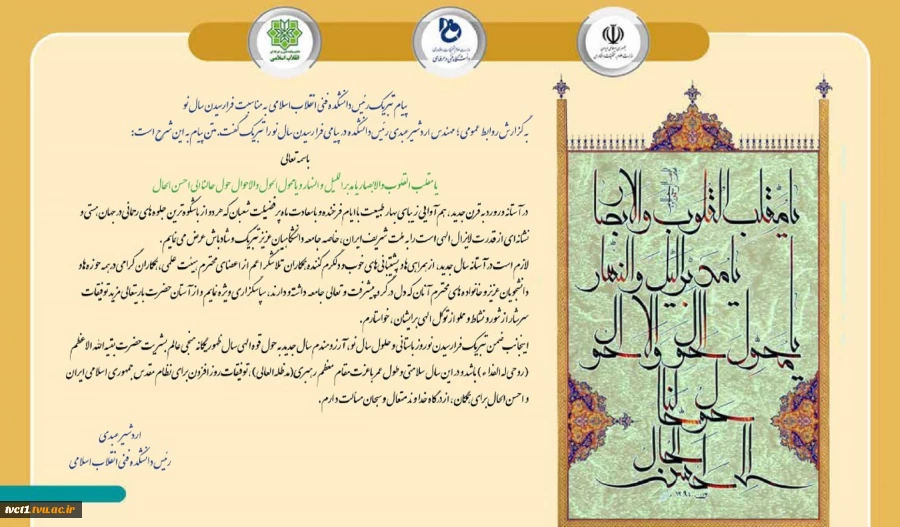 پیام تبریک رئیس دانشکده فنی انقلاب اسلامی به مناسبت فرارسیدن سال نو
به گزارش روابط عمومی؛ مهندس اردشیر عبدی رئیس دانشکده در پیامی فرارسیدن سال نو را تبریک گفت. متن پیام به این شرح است:
باسمه تعالی
یا مقلب القلوب والابصار یا مدبر اللیل و النهار و یا محول الحول والاحوال حول حالنا الی احسن الحال
در آستانه ورود به قرن جدید، هم آوایی زیبای بهار طبیعت با ایام فرخنده و با سعادت ماه پر فضیلت شعبان که هر دو از باشکوه ترین جلوه های رحمانی در جهان هستی و
نشانه ای از قدرت لایزال الهی است را به ملت شریف ایران، خاصه جامعه دانشگاهیان عزیز تبریک و شادباش عرض می نمایم.
لازم است در آستانه سال جدید، از همراهی ها و پشتیبانی های خوب و دلگرم کننده همکاران تلاشگر اعم از اعضای محترم هیئت علمی، همکاران گرامی در همه حوزه ها و
دانشجویان عزیز و خانواده های محترم آنان که دل در گرو پیشرفت و تعالی جامعه داشته و دارند، سپاسگزاری ویژه نمایم و از آستان حضرت باریتعالی مزید توفیقات
سرشار از شور و نشاط و مملو از توکل الهی برایشان، خواستارم.
اینجانب ضمن تبریک فرارسیدن نوروز باستانی و حلول سال نو، آرزومندم سال جدید به حول قوه الهی سال ظهور یگانه منجی عالم بشریت حضرت بقیه الله الاعظم
(روحی له الفداء) باشد و در این سال سلامتی و طول عمر با عزت مقام معظم رهبری (مدظله العالی)، توفیقات روز افزون برای نظام مقدس جمهوری اسلامی ایران
و احسن الحال برای همگان، از درگاه خداوند متعال و سبحان مسالت دارم.
اردشیر عبدی
رئیس دانشکده فنی انقلاب اسلامی
یا مقلب القلوب والابصار
یا مدبر اللیل والنهار
یا محول الحول والاحوال
حول حالنا
الی احسن الحال
انقلاب اسلامی
tvct1.tvu.ac.ir